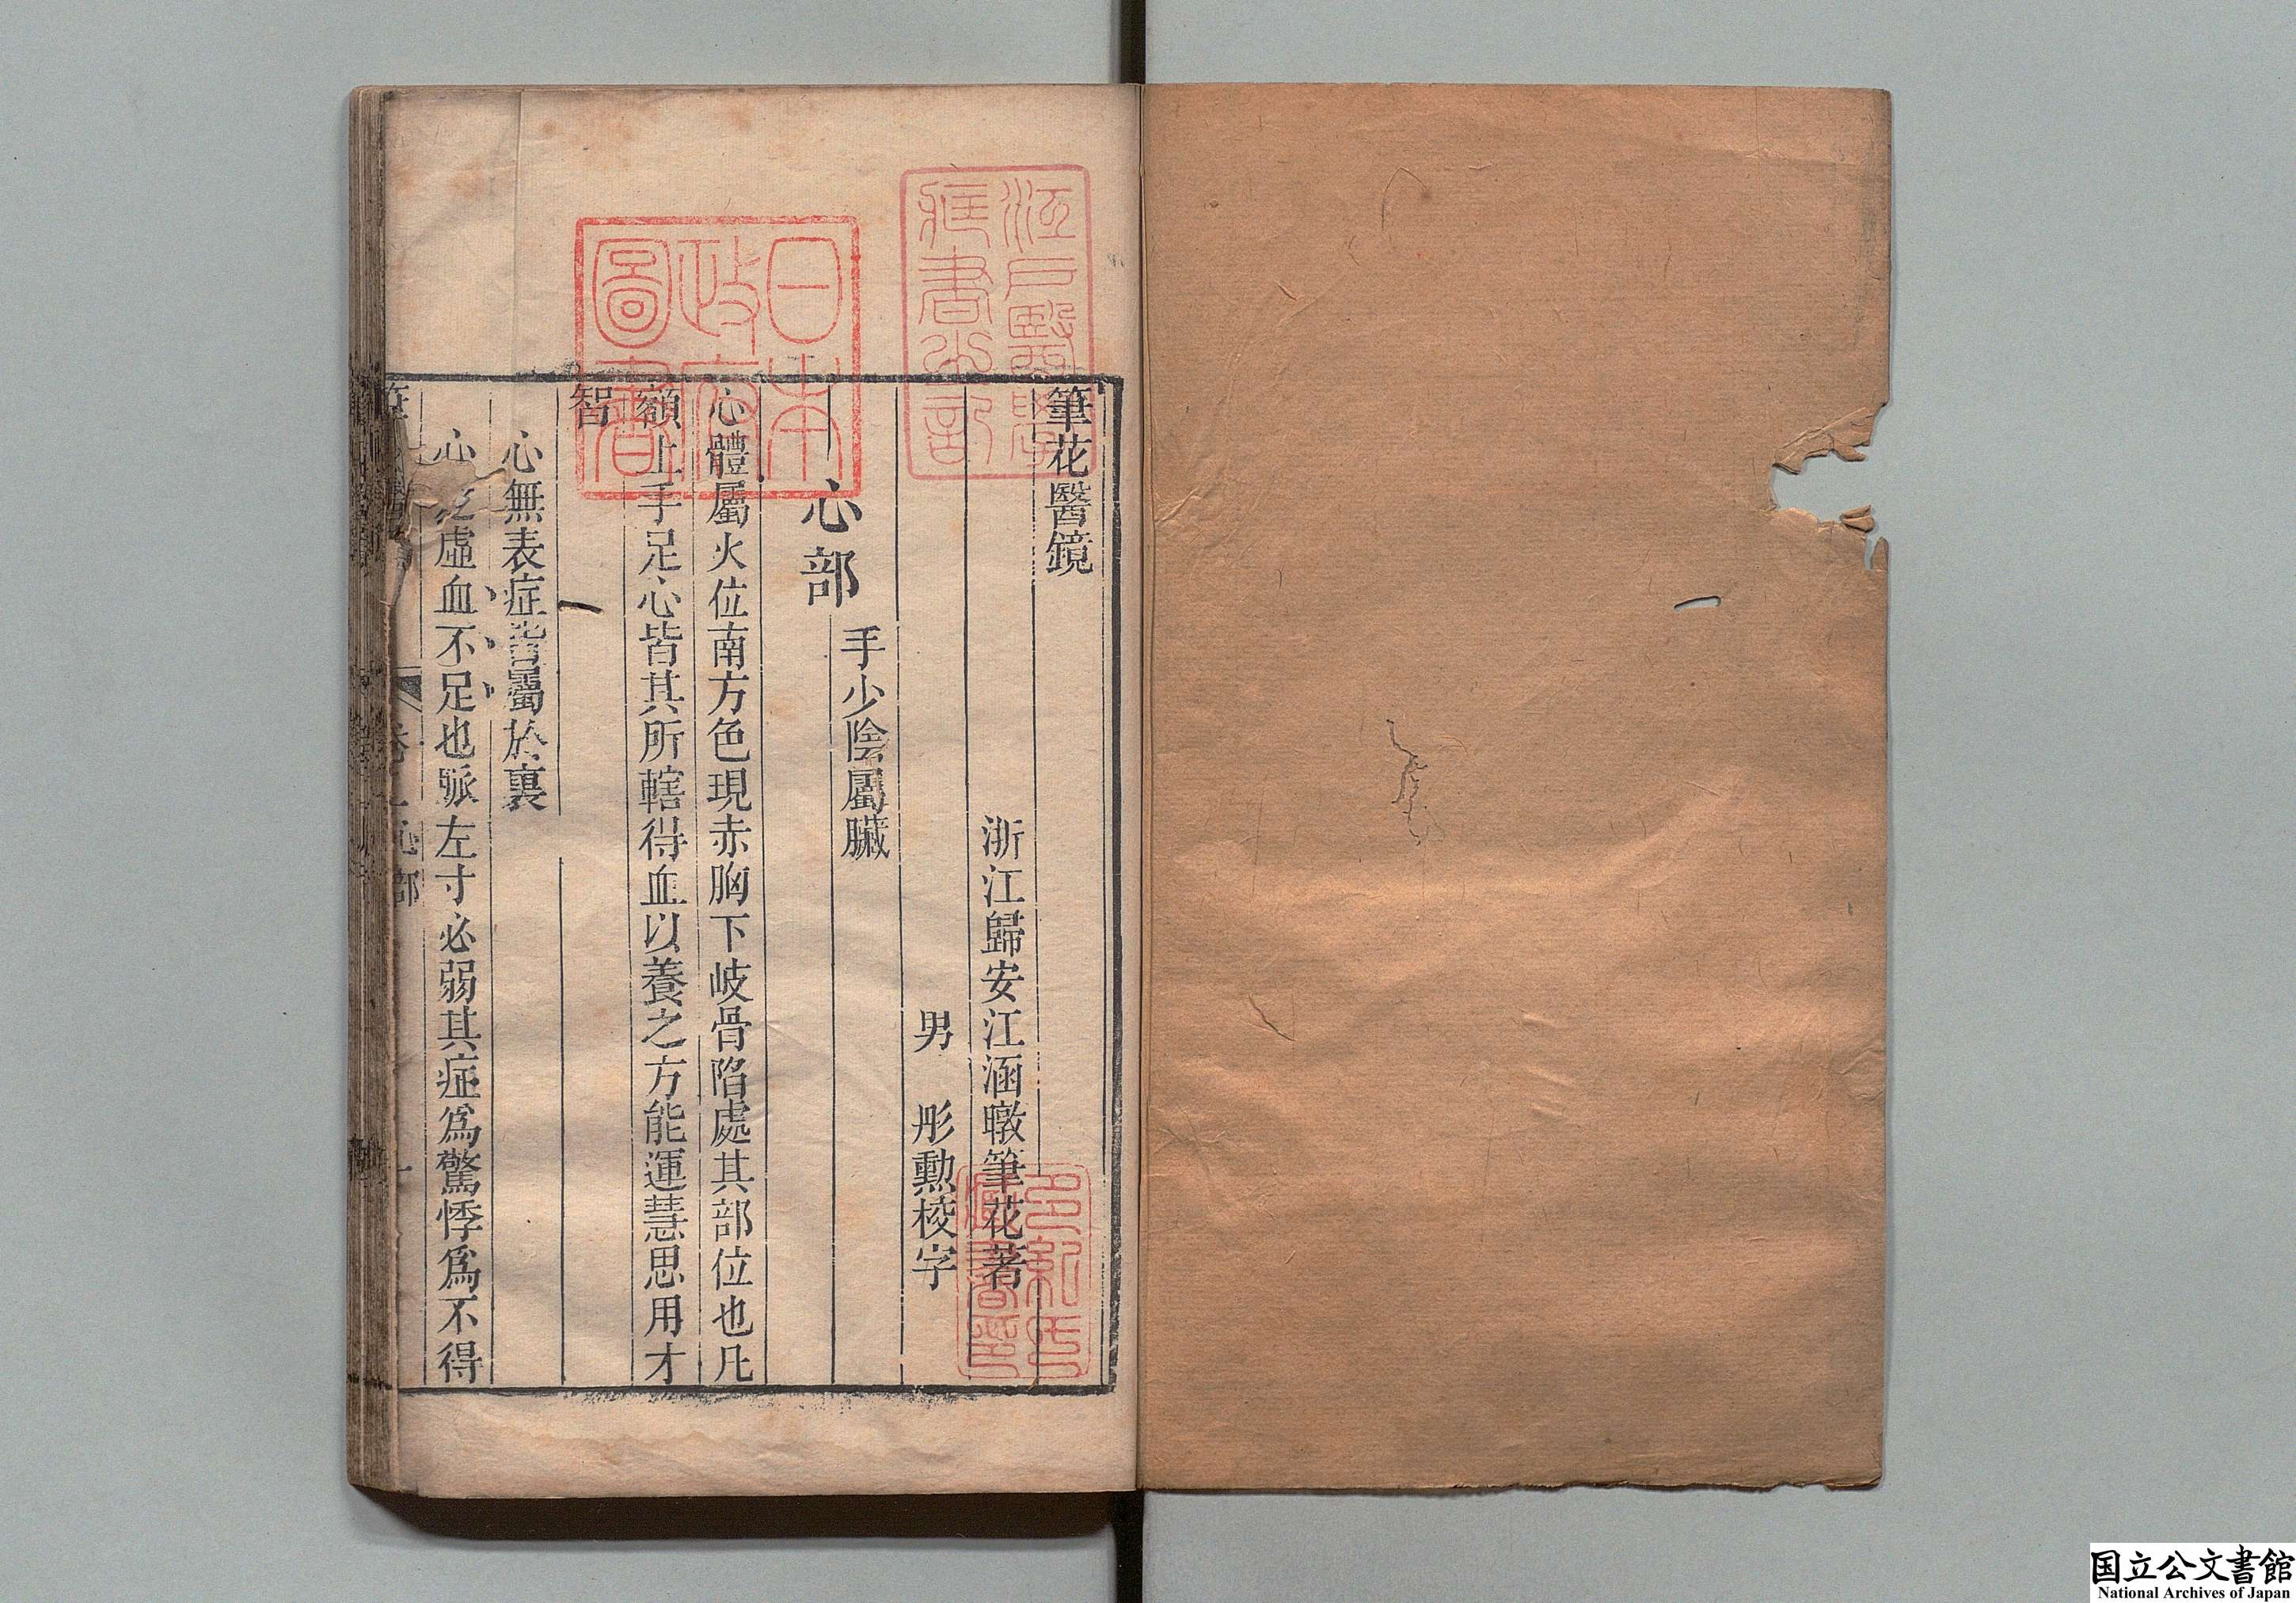 筆花醫鏡
浙江歸安江涵暾筆花著
男　彤勲校字
心部
手少陰屬臟
心體屬火位南方色現赤胸下岐骨陷處其部位也凡
額上手足心皆其所轄得血以養之方能運慧思用才
智
心無表症皆屬於裏
心之虛血不足也脈左寸必弱其症爲驚悸爲不得
心部
江戶醫學藏書之記
日本政府圖書
多紀氏藏書印
国立公文書館
National Archives of Japan